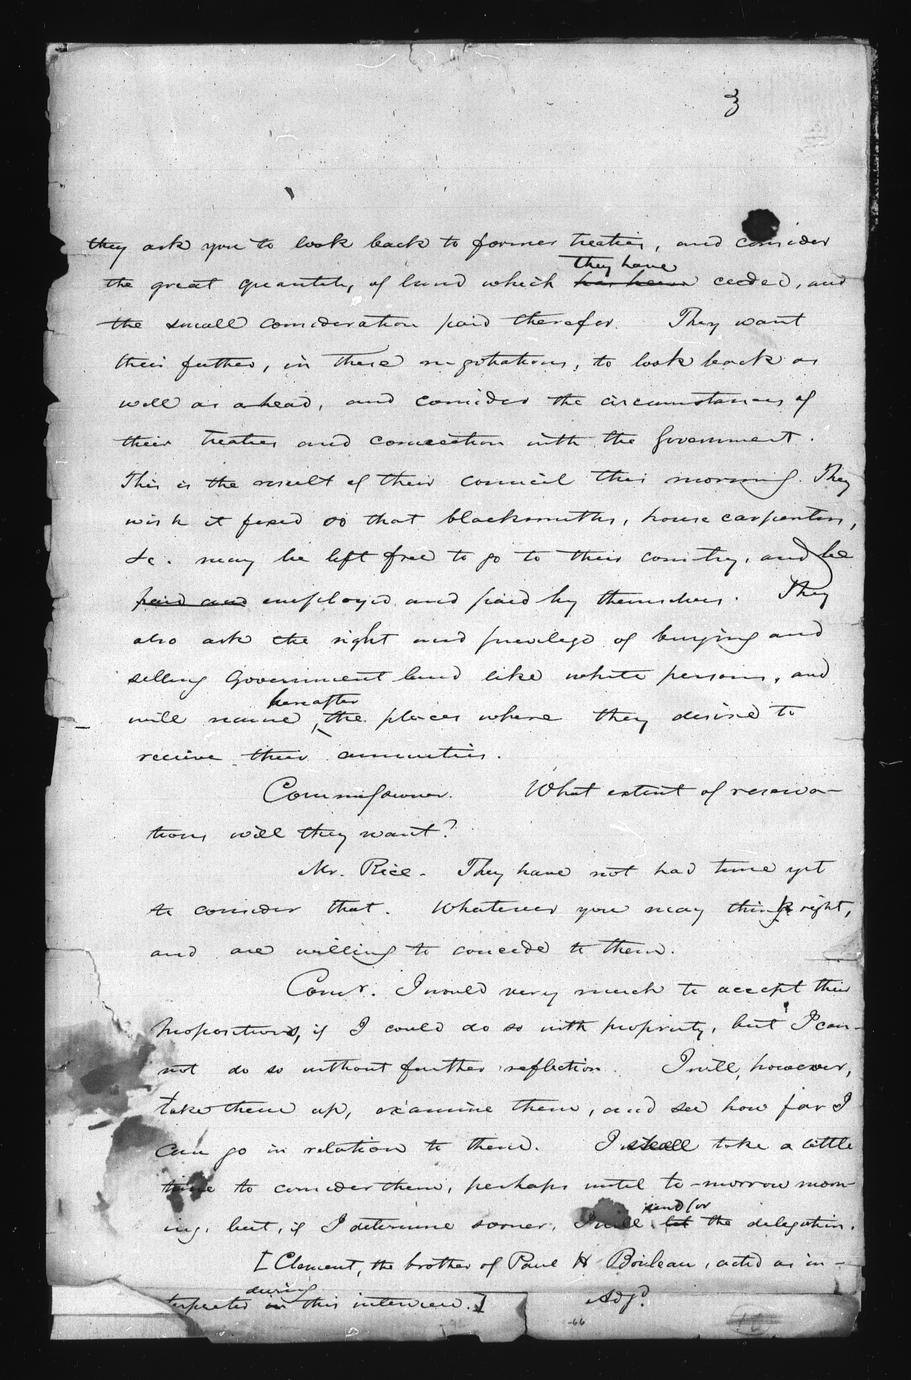 3
they ask you to look back to former treaties, and consider
they have
the great quantity of land which has been ceded, and
the small consideration paid therefor. They want
their father, in these negotiations, to look back as
well as ahead, and consider the circumstances of
their treaties and connection with the Government.
This is the result of their council this morning. They
wish it fixed so that blacksmiths, house carpenters,
&c. may be left free to go to their country, and be
paid and employed and paid by themselves. They
also ask the right and privilege of buying and
selling Government land like white persons, and
hereafter
will name the places where they desire to
receive their annuities.
Commissioner. What extent of reserva-
tions will they want?
Mr. Rice. They have not had time yet
to consider that. Whatever you may think right,
and are willing to concede to them.
Com'r. I would very much to accept their
propositions, if I could do so with propriety, but I can-
not do so without further reflection. I will, however,
take them up, examine them, and see how far I
can go in relation to them. I shall take a little
time to consider them, perhaps until to-morrow morn-
send for
ing, but, if I determine sooner, I will let the delegation.
[Clement, the brother of Paul H Beaulieau, acted as in-
during
terpreter in this interview.] Adj'd.
-66